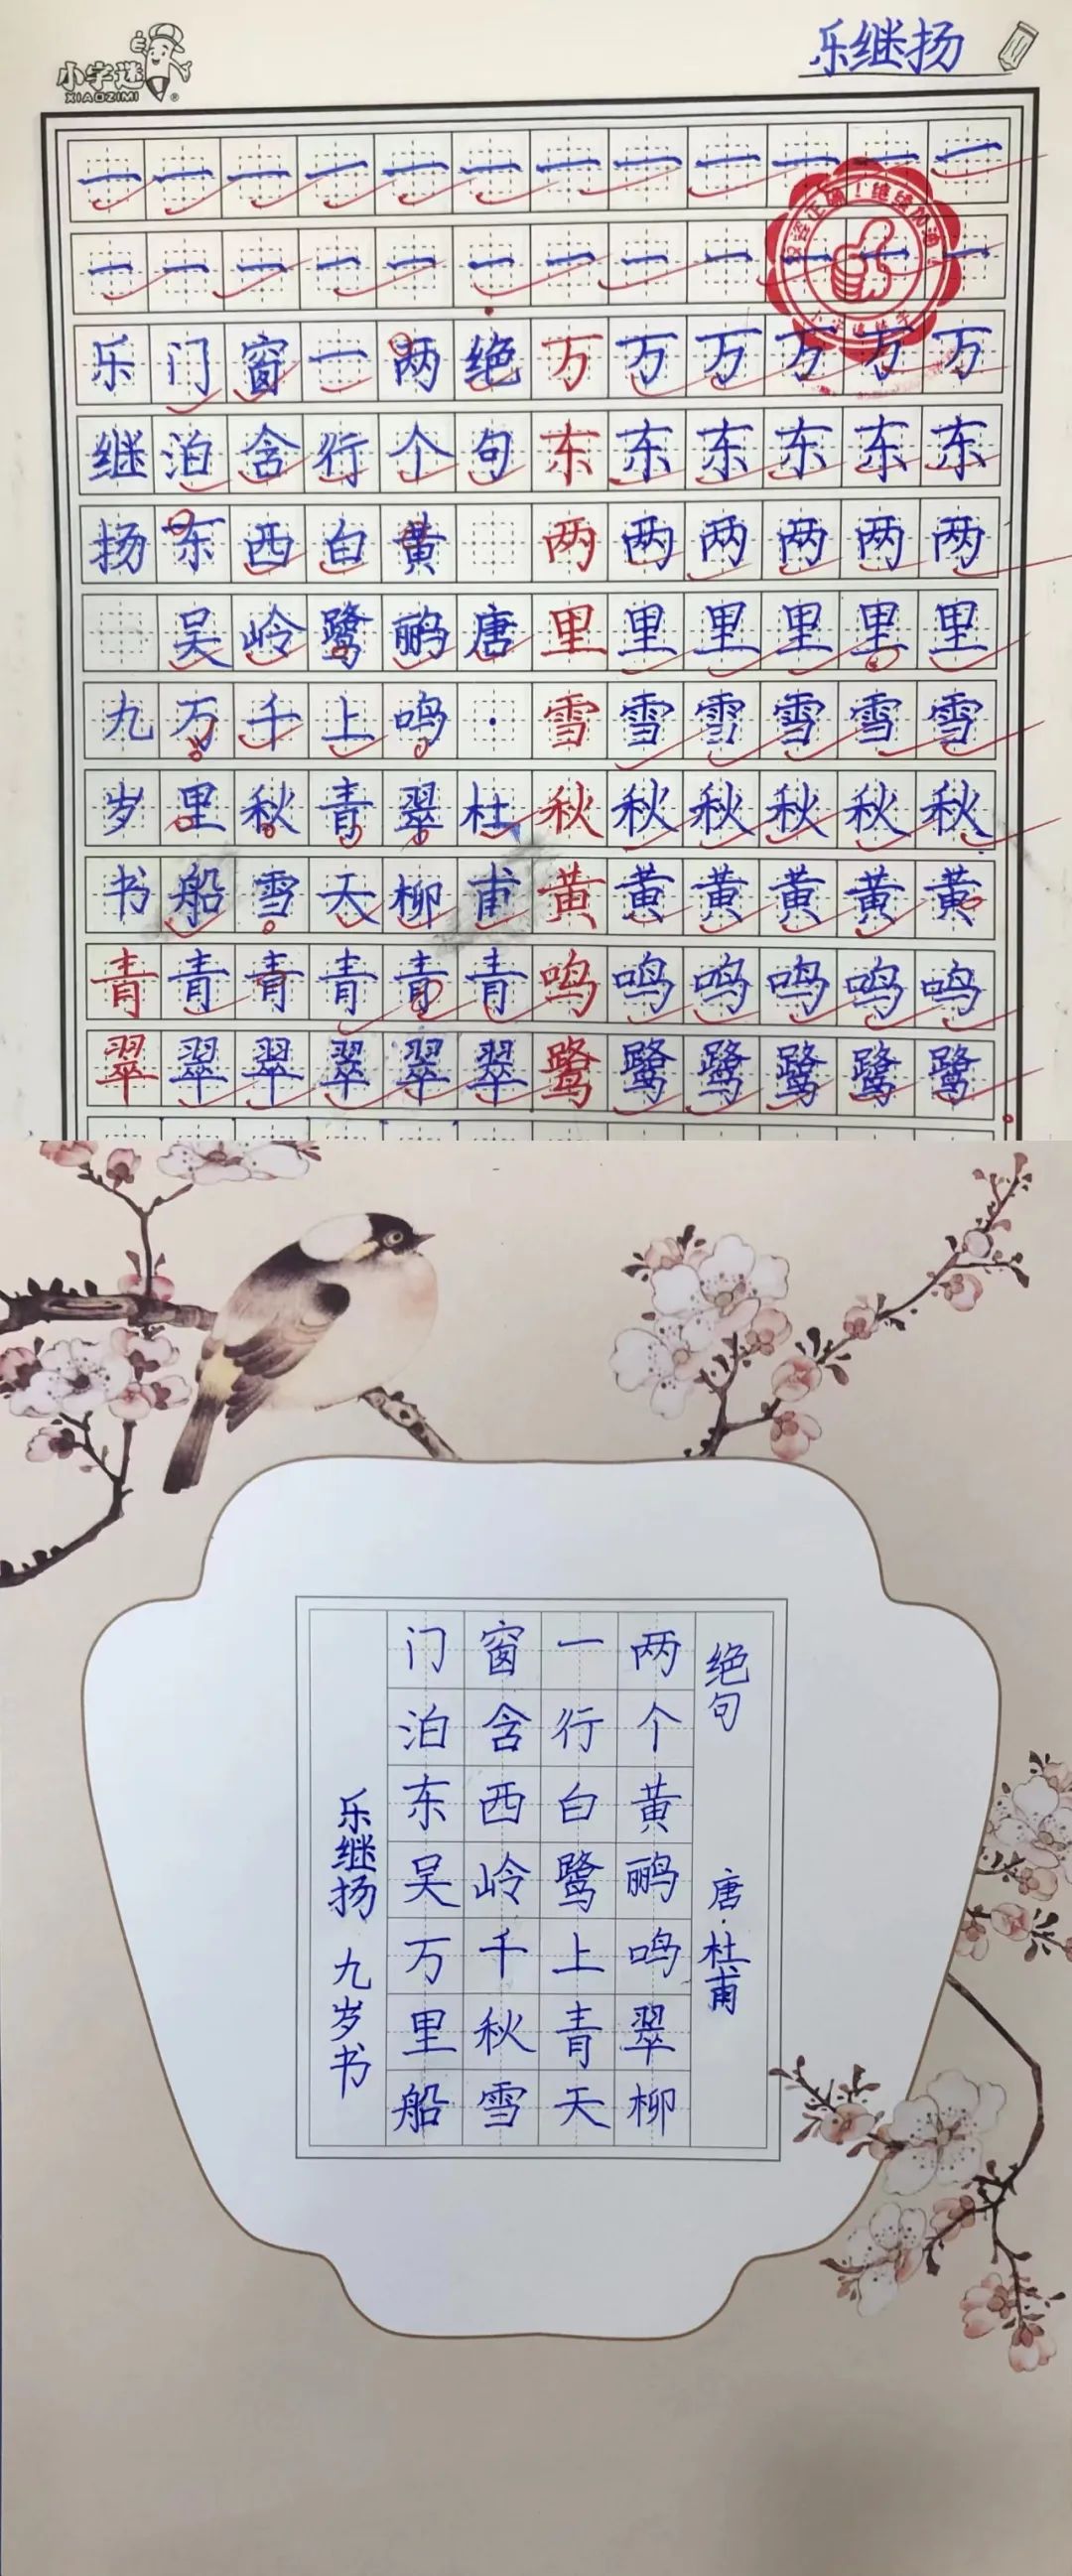 小字迷
XIAOZIMI
乐继扬
一一一一一一一一一一一一
一一一一一一一一一一一一
双姿正确！继续加油！
小字迷练字
乐门窗一两绝万万万万万万
继泊含行个句东东东东东东
扬东西白黄两两两两两两
吴岭鹭鹂唐里里里里里里
九万千上鸣·雪雪雪雪雪雪
岁里秋青翠杜秋秋秋秋秋秋
书船雪天柳甫黄黄黄黄黄黄
青青青青青青鸣鸣鸣鸣鸣鸣
翠翠翠翠翠翠鹭鹭鹭鹭鹭鹭
绝句 唐·杜甫
两个黄鹂鸣翠柳
一行白鹭上青天
窗含西岭千秋雪
门泊东吴万里船
乐继扬 九岁书